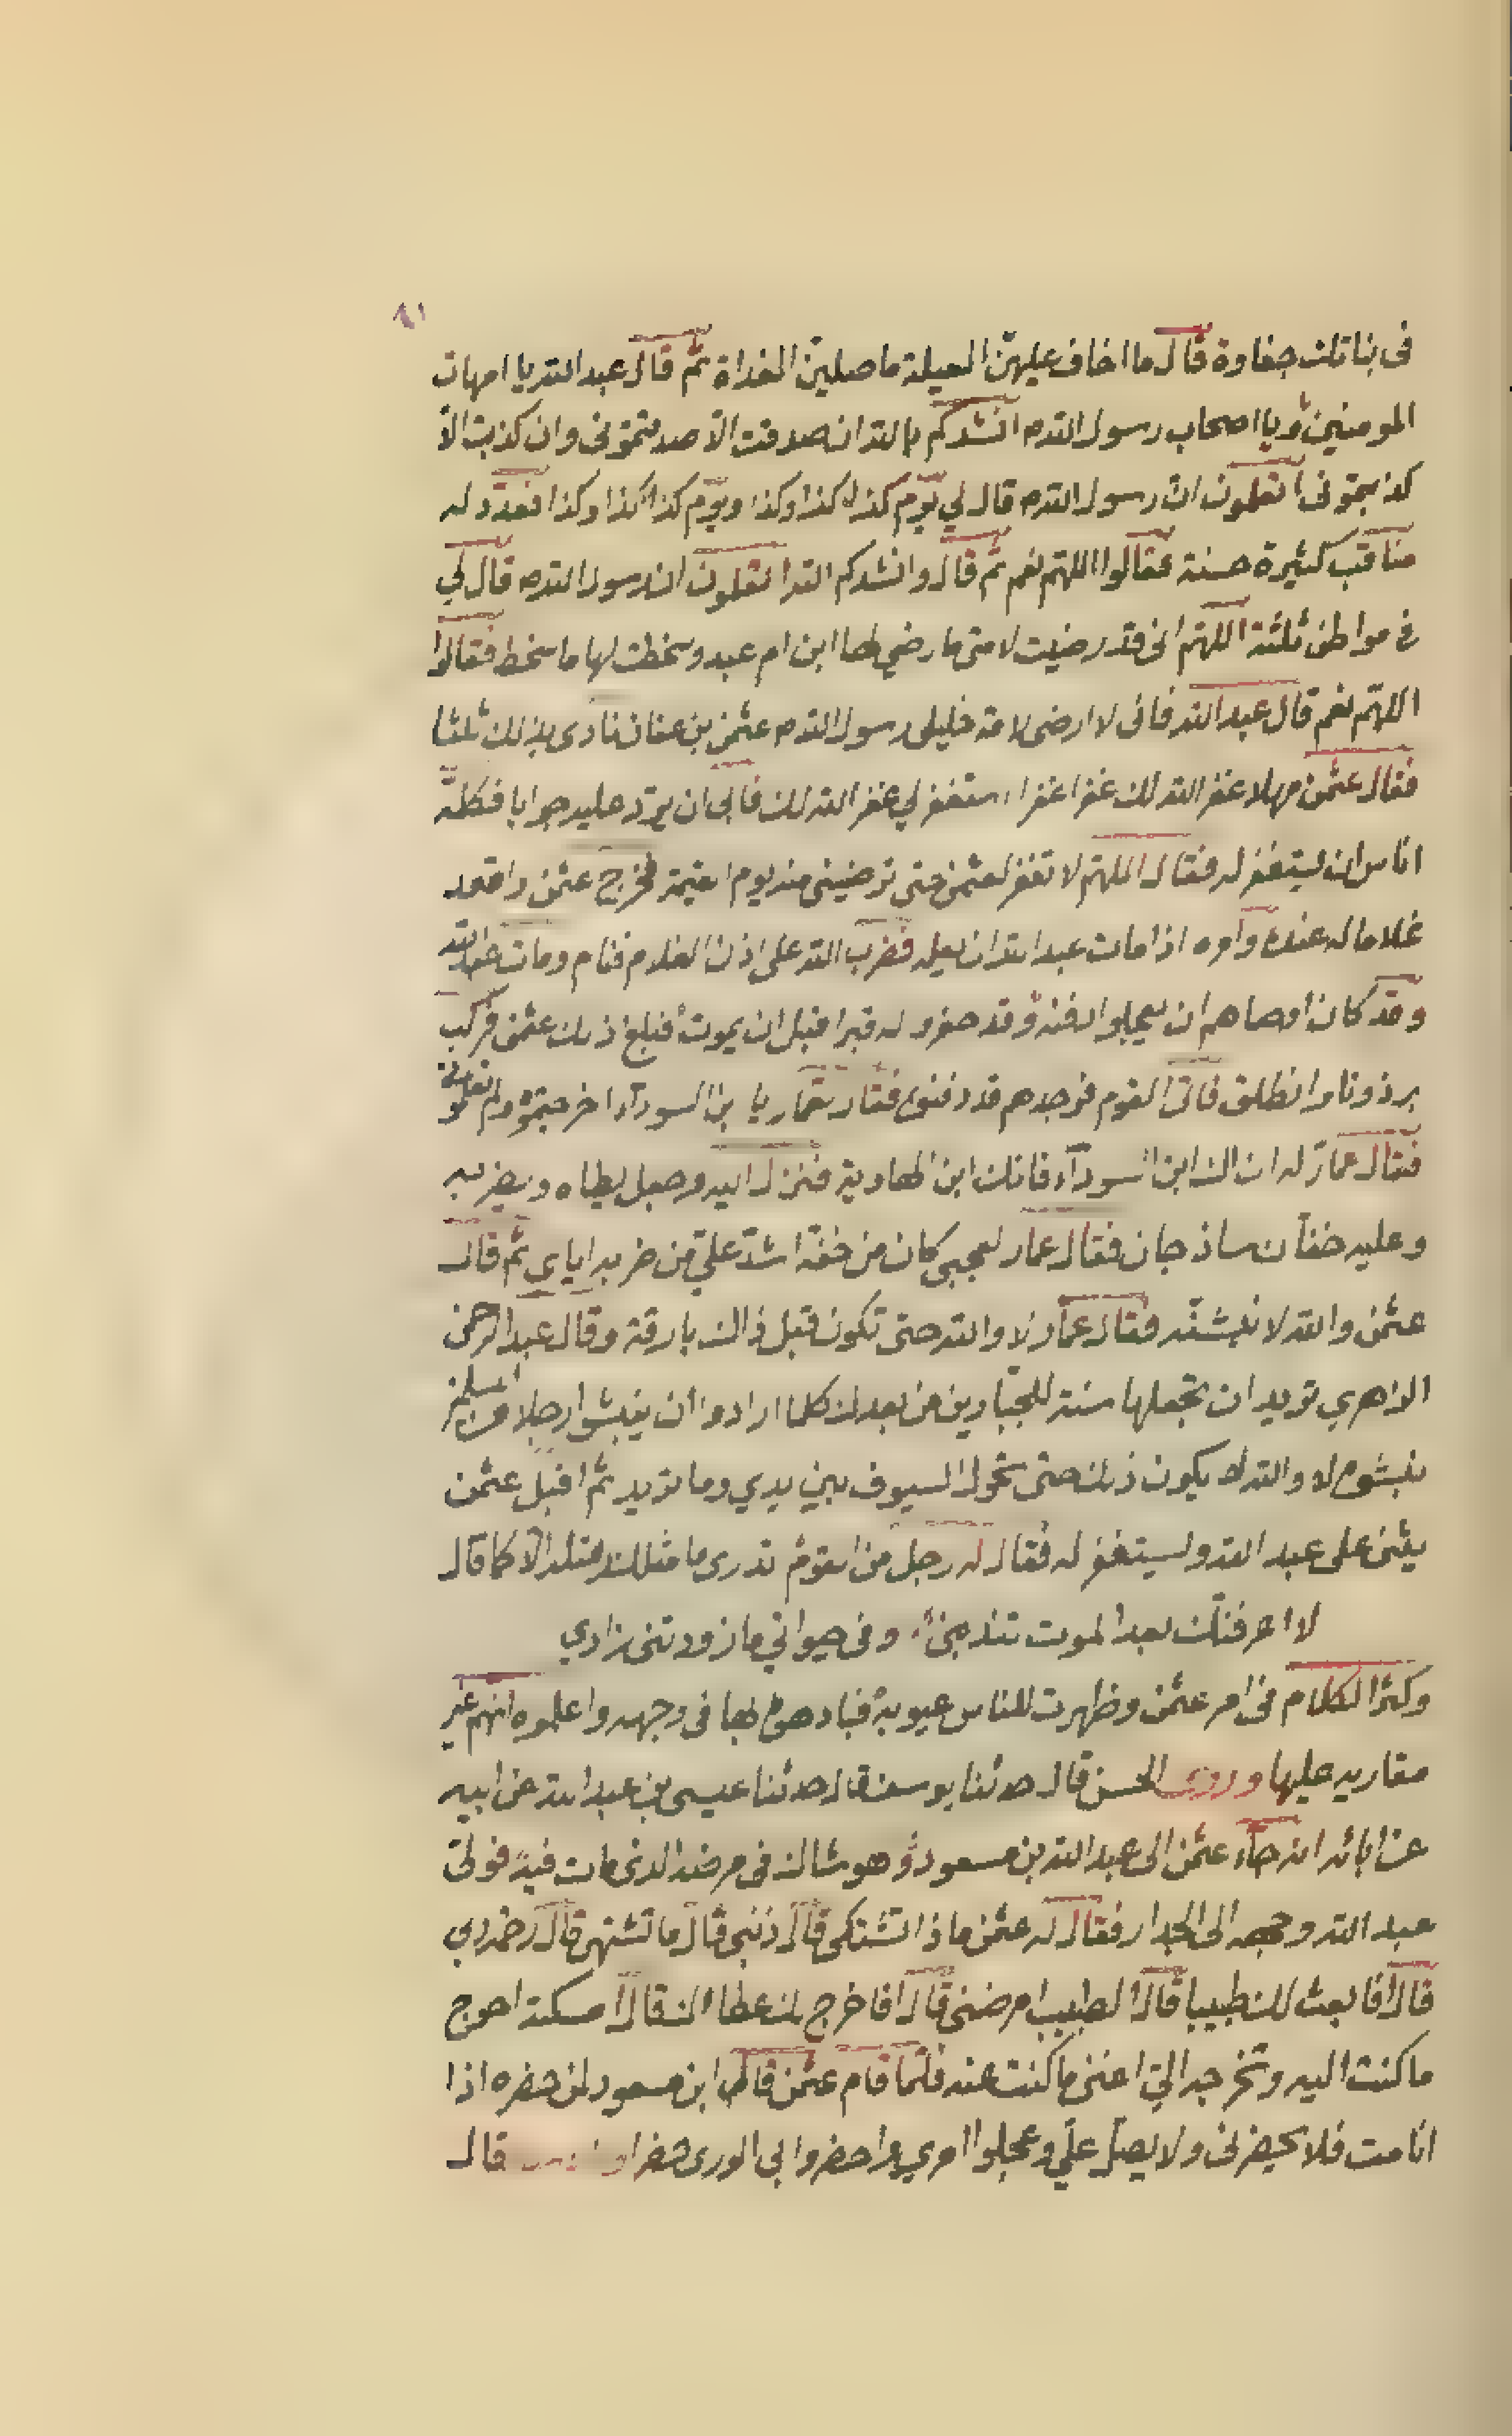 ٩١
في بناتك جفاوة قال ما اخاف عليهنّ العيلة ما صلين الغداة ثم قال عبد الله يا امهات
المومنين ويا اصحاب رسول الله انشدكم بالله ان صدقت الّا صدقتموني وان كذبت الّا
كذبتموني اتعلمون انّ رسول الله قال لي يوم كذا كذا وكذا ويوم كذا كذا وكذا فعدّد له
مناقب كثيرة حسنة فقالوا اللهمّ نعم ثم قال وانشدكم الله اتعلمون ان رسول الله قال لي
في مواطن ثلثة اللهمّ اني قد رضيت لامتي ما رضي لها ابن ام عبد وسخطت لها ما سخط فقالوا
اللهمّ نعم قال عبد الله فاني لا ارضى لامة خليلي رسول الله عثمن بن عفان نادى بذلك ثلثا
فقال عثمن مهلا غفر الله لك غفرا غفرا استغفر لي غفر الله لك فابى ان يردّ عليه جوابا فكلمه
اناس ان ليستغفر له فقال اللهمّ لا تغفر لعثمن حتى ترضيني منه يوم القيمة فخرج عثمن واقعد
غلاما له عنده وامره اذا مات عبد الله ان يعلمه فضرب الله على اذن الغلام فنام ومات عبد الله
وقد كان اوصاهم ان يعجلوا دفنه وقد حفروا له قبرا قبل ان يموت فبلغ ذلك عثمن فركب
برذونا وانطلق فاتى القوم فوجدهم قد دفنوه فقال لعمار يا بن السودآء اخرجتموه ولم تعلمونا
فقال عمار له ان اك ابن السودآء فانك ابن الهاوية فنزل اليه وجعل يطاه ويضربه
وعليه خفان ساذجان فقال عمار لعجبي كان من خفّه اشدّ عليّ من ضربه اياي ثم قال
عثمن والله لا نبشنّه فقال عمار لا والله حتى تكون قبل ذالك بارقة وقال عبد الرحمن
الازهري تريد ان تجعلها سنة للجبّارين من بعدك كلما ارادوا ان ينبشوا رجلا من المسلمين
نبشوه لا والله لا يكون ذلك حتى تحول السيوف بين يدي وما تريد ثم اقبل عثمن
يثني على عبد الله ويستغفر له فقال له رجل من القوم تدري ما مثلك ومثله الّا كما قال
لا اعرفنّك بعد الموت تندبني وفي حيواتي ما زودتني زادي
وكثر الكلام في امر عثمن وظهرت للناس عيوبه فبادهوه بها في وجهه واعلموه انهم غير
مقاريه عليها وروى الحسن قال حدثنا يوسف قال حدثنا عيسى بن عبد الله عن ابيه
عن ابائه انه جآء عثمن الى عبد الله بن مسعود وهو شاك في مرضه الذي مات فيه فولى
عبد الله وجهه الى الجدار فقال له عثمن ماذا تشتكي قال ذنبي قال ما تشتهي قال رحمة ربي
قال افا بعث لك طبيبا قال الطبيب امرضني قال افا خرج لك عطاك قال امسكته احوج
ما كنت اليه وتخرجه اليّ اغنى ما كنت عنه فلمّا قام عثمن قال ابن مسعود لمن حضره اذا
انا مت فلا يحضرني ولا يصلّ عليّ وعجلوا امري واحضروا بي الورى قال